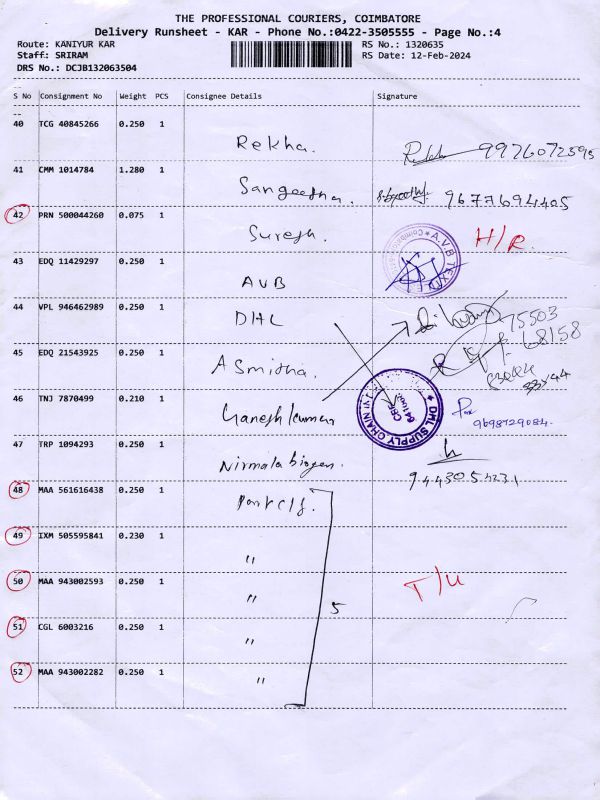 THE PROFESSIONAL COURIERS, COIMBATORE
Delivery Runsheet - KAR - Phone No.:0422-3505555 - Page No.:4
Route: KANIYUR KAR
RS No.: 1320635
Staff: SRIRAM
RS Date: 12-Feb-2024
DRS No.: DCJB132063504
S No Consignment No Weight PCS Consignee Details Signature
40 TCG 40845266 0.250 1
Rekha. 9976072595
41 CMM 1014784 1.280 1
Sangeetha. 9677694405
42 PRN 500044260 0.075 1
Suresh. H/R.
43 EDQ 11429297 0.250 1
AVB
A.V.B TEX
44 VPL 946462989 0.250 1
DHL
75503
68158
45 EDQ 21543925 0.250 1
A Smitha.
46 TNJ 7870499 0.210 1
Ganesh kumar
DHL SUPPLY CHAIN
9698729084.
47 TRP 1094293 0.250 1
Nirmala
9443054231
48 MAA 561616438 0.250 1
49 IXM 505595841 0.230 1
"
50 MAA 943002593 0.250 1
" 5 T/U
51 CGL 6003216 0.250 1
"
52 MAA 943002282 0.250 1
"